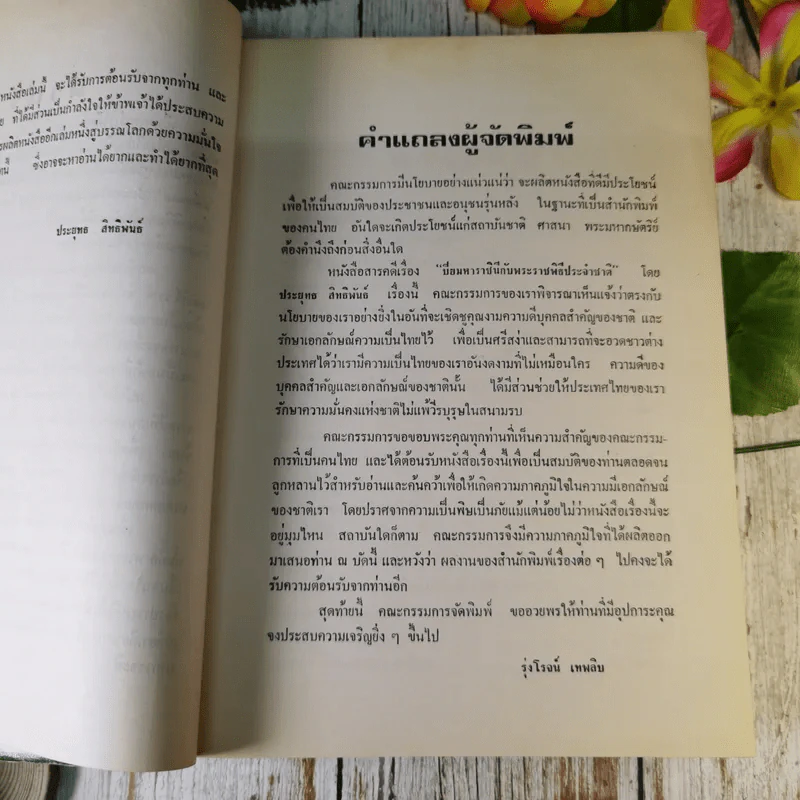 หนังสือเล่มนี้ จะได้รับการต้อนรับจากทุกท่าน และ
ที่ได้มีส่วนเป็นกำลังใจให้ข้าพเจ้าได้ประสบความ
ผลิตหนังสืออีกเล่มหนึ่งสู่บรรณโลกด้วยความมั่นใจ
ซึ่งอาจจะหาอ่านได้ยากและทำได้ยากที่สุด
ประยุทธ สิทธิพันธ์
คำแถลงผู้จัดพิมพ์
คณะกรรมการมีนโยบายอย่างแน่วแน่ว่า จะผลิตหนังสือที่ดีมีประโยชน์
เพื่อให้เป็นสมบัติของประชาชนและอนุชนรุ่นหลัง ในฐานะที่เป็นสำนักพิมพ์
ของคนไทย อันใดจะเกิดประโยชน์แก่สถาบันชาติ ศาสนา พระมหากษัตริย์
ต้องคำนึงถึงก่อนสิ่งอื่นใด
หนังสือสารคดีเรื่อง "ปิยมหาราชินีกับพระราชพิธีประจำชาติ" โดย
ประยุทธ สิทธิพันธ์ เรื่องนี้ คณะกรรมการของเราพิจารณาเห็นแจ้งว่าตรงกับ
นโยบายของเราอย่างยิ่งในอันที่จะเชิดชูคุณงามความดีบุคคลสำคัญของชาติ และ
รักษาเอกลักษณ์ความเป็นไทยไว้ เพื่อเป็นศรีสง่าและสามารถที่จะอวดชาวต่าง
ประเทศได้ว่าเรามีความเป็นไทยของเราอันงดงามที่ไม่เหมือนใคร ความดีของ
บุคคลสำคัญและเอกลักษณ์ของชาตินั้น ได้มีส่วนช่วยให้ประเทศไทยของเรา
รักษาความมั่นคงแห่งชาติไม่แพ้วีรบุรุษในสนามรบ
คณะกรรมการขอขอบพระคุณทุกท่านที่เห็นความสำคัญของคณะกรรม-
การที่เป็นคนไทย และได้ต้อนรับหนังสือเรื่องนี้เพื่อเป็นสมบัติของท่านตลอดจน
ลูกหลานไว้สำหรับอ่านและค้นคว้าเพื่อให้เกิดความภาคภูมิใจในความมีเอกลักษณ์
ของชาติเรา โดยปราศจากความเป็นพิษเป็นภัยแม้แต่น้อยไม่ว่าหนังสือเรื่องนี้จะ
อยู่มุมไหน สถาบันใดก็ตาม คณะกรรมการจึงมีความภาคภูมิใจที่ได้ผลิตออก
มาเสนอท่าน ณ บัดนี้ และหวังว่า ผลงานของสำนักพิมพ์เรื่องต่อ ๆ ไปคงจะได้
รับความต้อนรับจากท่านอีก
สุดท้ายนี้ คณะกรรมการจัดพิมพ์ ขออวยพรให้ท่านที่มีอุปการะคุณ
จงประสบความเจริญยิ่ง ๆ ขึ้นไป
รุ่งโรจน์ เทพลิบ